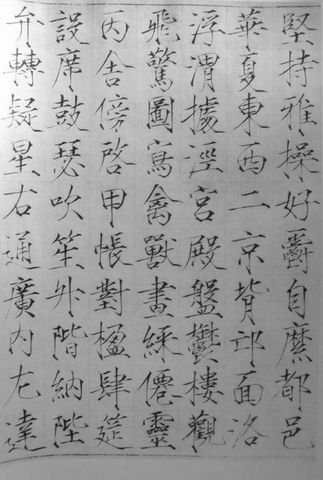 堅持雅操好爵自縻都邑
華夏東西二京背邙面洛
浮渭據涇宮殿盤鬱樓觀
飛驚圖寫禽獸畫綵僊靈
丙舍傍啓甲帳對楹肆筵
設席鼓瑟吹笙升階納陛
弁轉疑星右通廣內左達